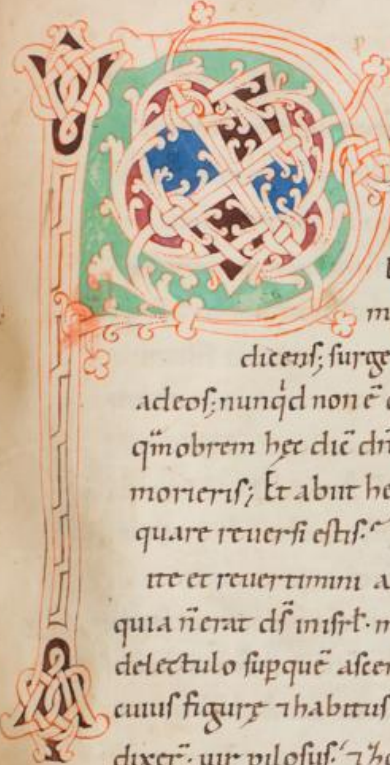 P
m
dicens; surge
adeos; nunqd non ē
qm̄obrem hęc dic̄ dn̄
morieris; Et abiit he
quare reuersi estis.
ite et reuertimini a
quia n̄ erat ds̄ in isrl̄. m
delectulo sup quē ascen
cuius figurę ⁊ habitus
dixer̄. uir pilosus. ⁊ he